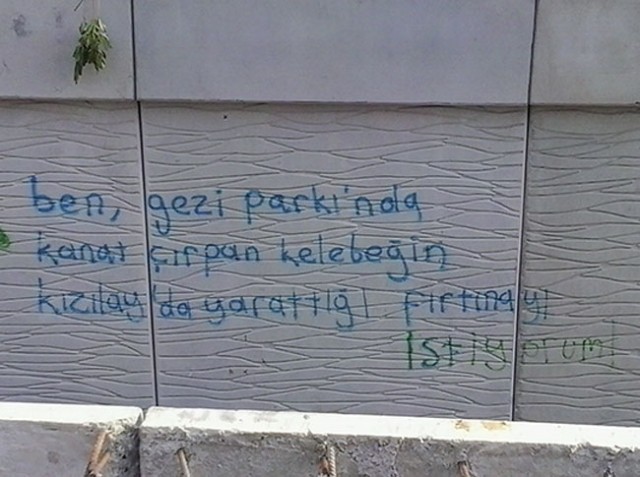 ben, gezi parkı'nda
kanat çırpan kelebeğin
kızılay'da yarattığı fırtınayı
istiyorum!